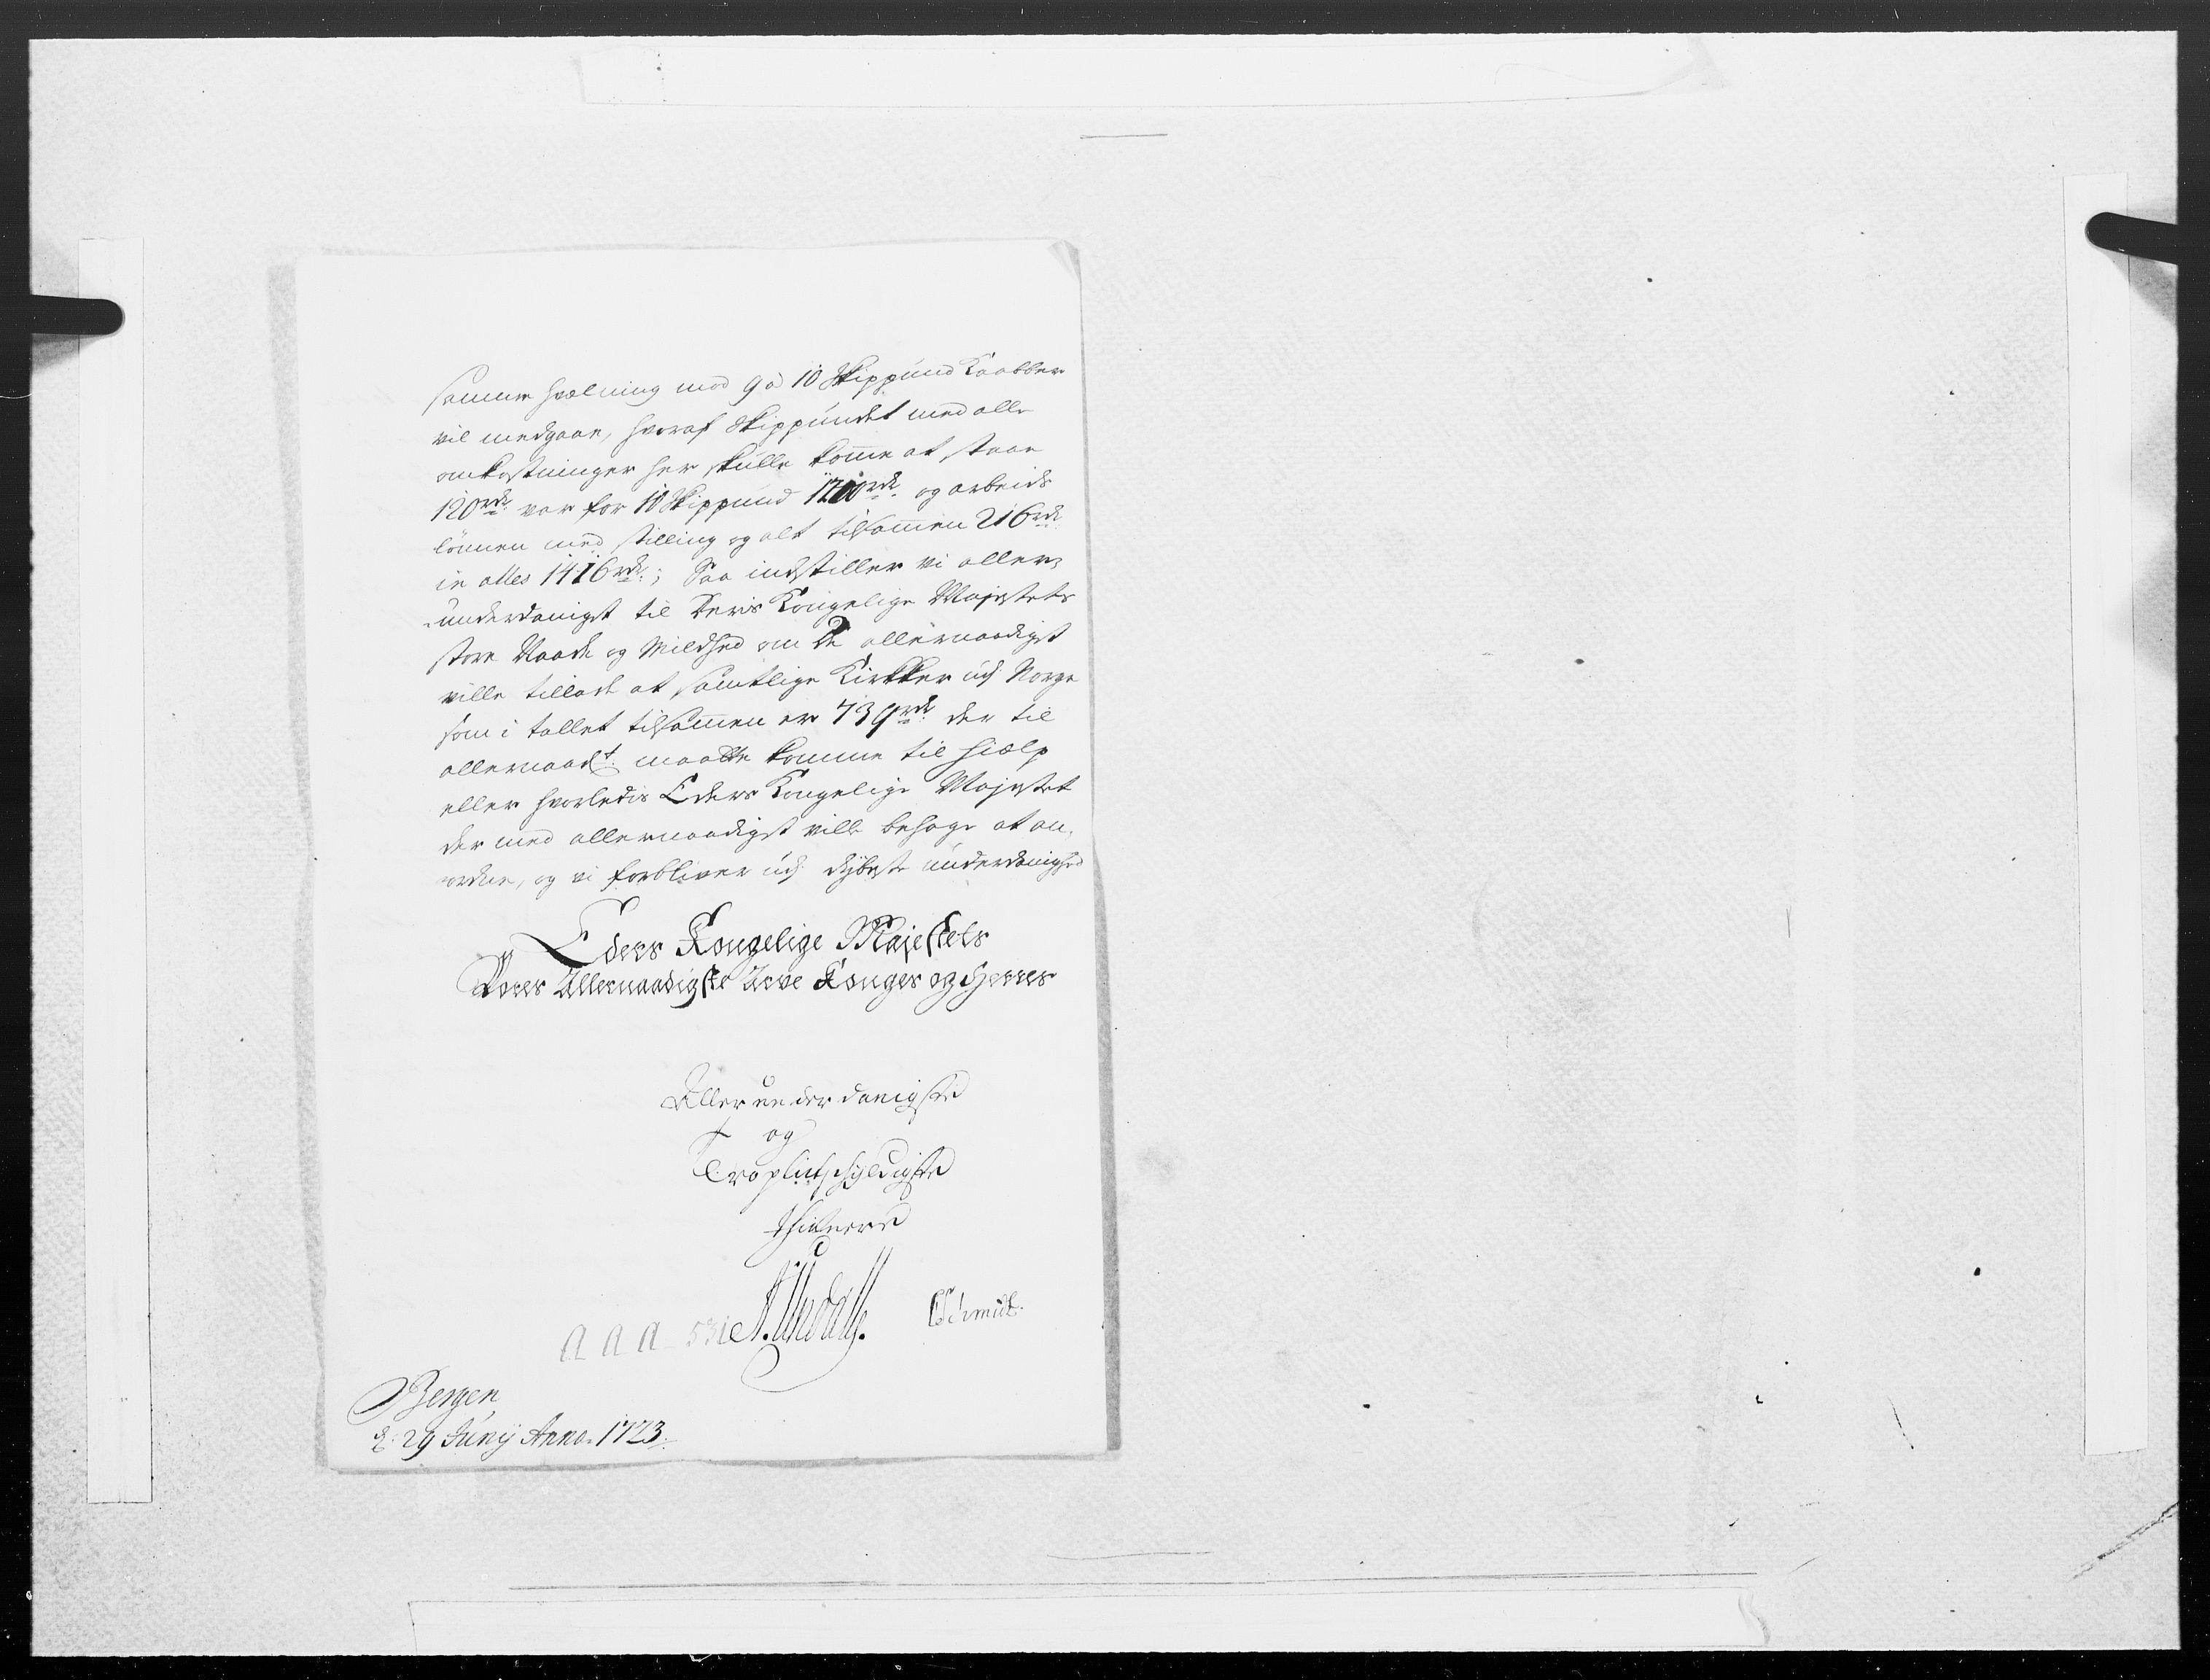 samme hvælning med 9 a 10 Skippund Kaabber
vil medgaae, hvoraf Skippundet med alle
omkostninger her skulle komme at staae
120 rd. var for 10 Skippund 1200 rd. og arbeids
lønnen med stilling og alt tilsammen 216 rd.
in alles 1416 rd.; Saa indstiller vi aller¬
underdanigst til Deris Kongelige Majestets
store Naade og Mildhed om De allernaadigst
ville tillade at samtlige Kirkker udj Norge
som i tallet tilsammen er 739 rd. der til
allernaadt. maatte komme til hielp
eller hvorledis Eders Kongelige Majestet
der med allernaadigst ville behage at an¬
ordne, og vi forbliver udj dybeste underdanighed
Eders Kongelige Majestets
Vores Allernaadigste Arve Konges og Herres
Allerunderdanigste
og
Tropligtskyldigste
thienere
A. Undall.
CSchmidt.
Bergen
d: 29 Junij Anno. 1723.